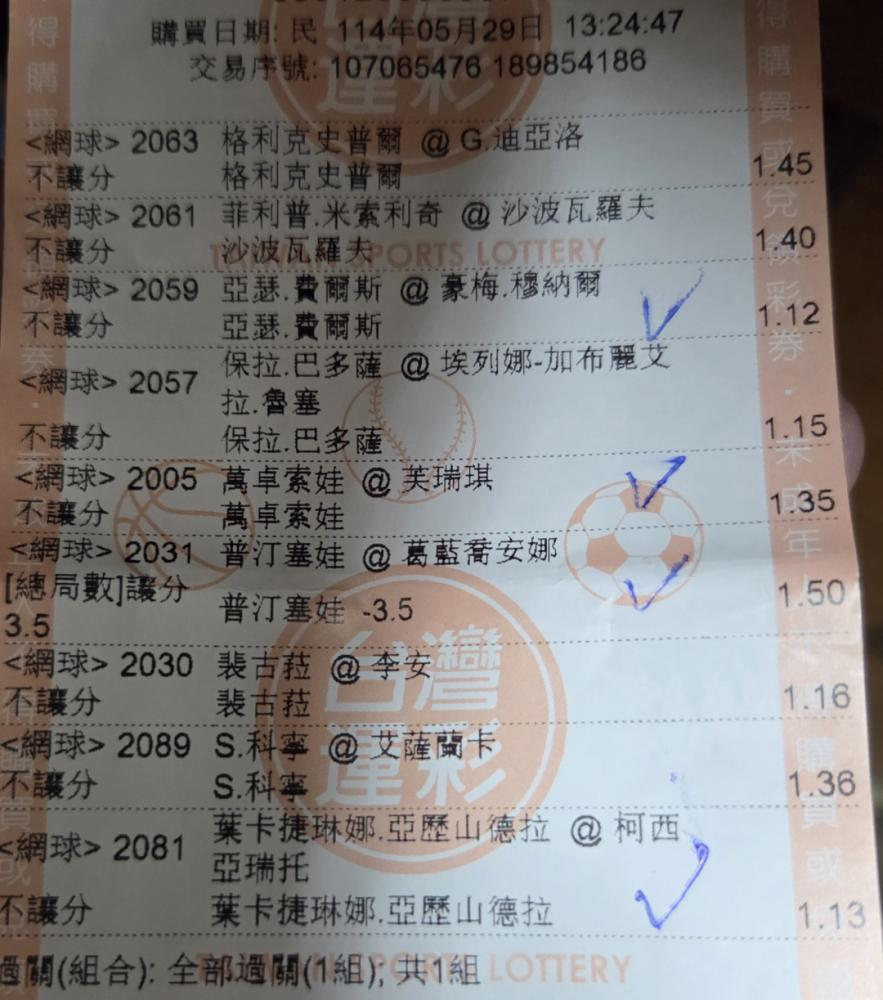 購買日期: 民 114年05月29日 13:24:47
交易序號: 107065476 189854186
<網球> 2063 格利克史普爾 @ G.迪亞洛
不讓分 格利克史普爾 1.45
<網球> 2061 菲利普.米索利奇 @ 沙波瓦羅夫
不讓分 沙波瓦羅夫 1.40
<網球> 2059 亞瑟.費爾斯 @ 豪梅.穆納爾
不讓分 亞瑟.費爾斯 1.12
<網球> 2057 保拉.巴多薩 @ 埃列娜-加布麗艾
拉.魯塞
不讓分 保拉.巴多薩 1.15
<網球> 2005 萬卓索娃 @ 芙瑞琪
不讓分 萬卓索娃 1.35
<網球> 2031 普汀塞娃 @ 葛藍喬安娜
[總局數]讓分 普汀塞娃 -3.5 1.50
3.5
<網球> 2030 裴古菈 @ 李安
不讓分 裴古菈 1.16
<網球> 2089 S.科寧 @ 艾薩蘭卡
不讓分 S.科寧 1.36
<網球> 2081 葉卡捷琳娜.亞歷山德拉 @ 柯西
亞瑞托
不讓分 葉卡捷琳娜.亞歷山德拉 1.13
過關(組合): 全部過關(1組); 共1組
台灣
運彩
SPORTS LOTTERY
LOTTERY